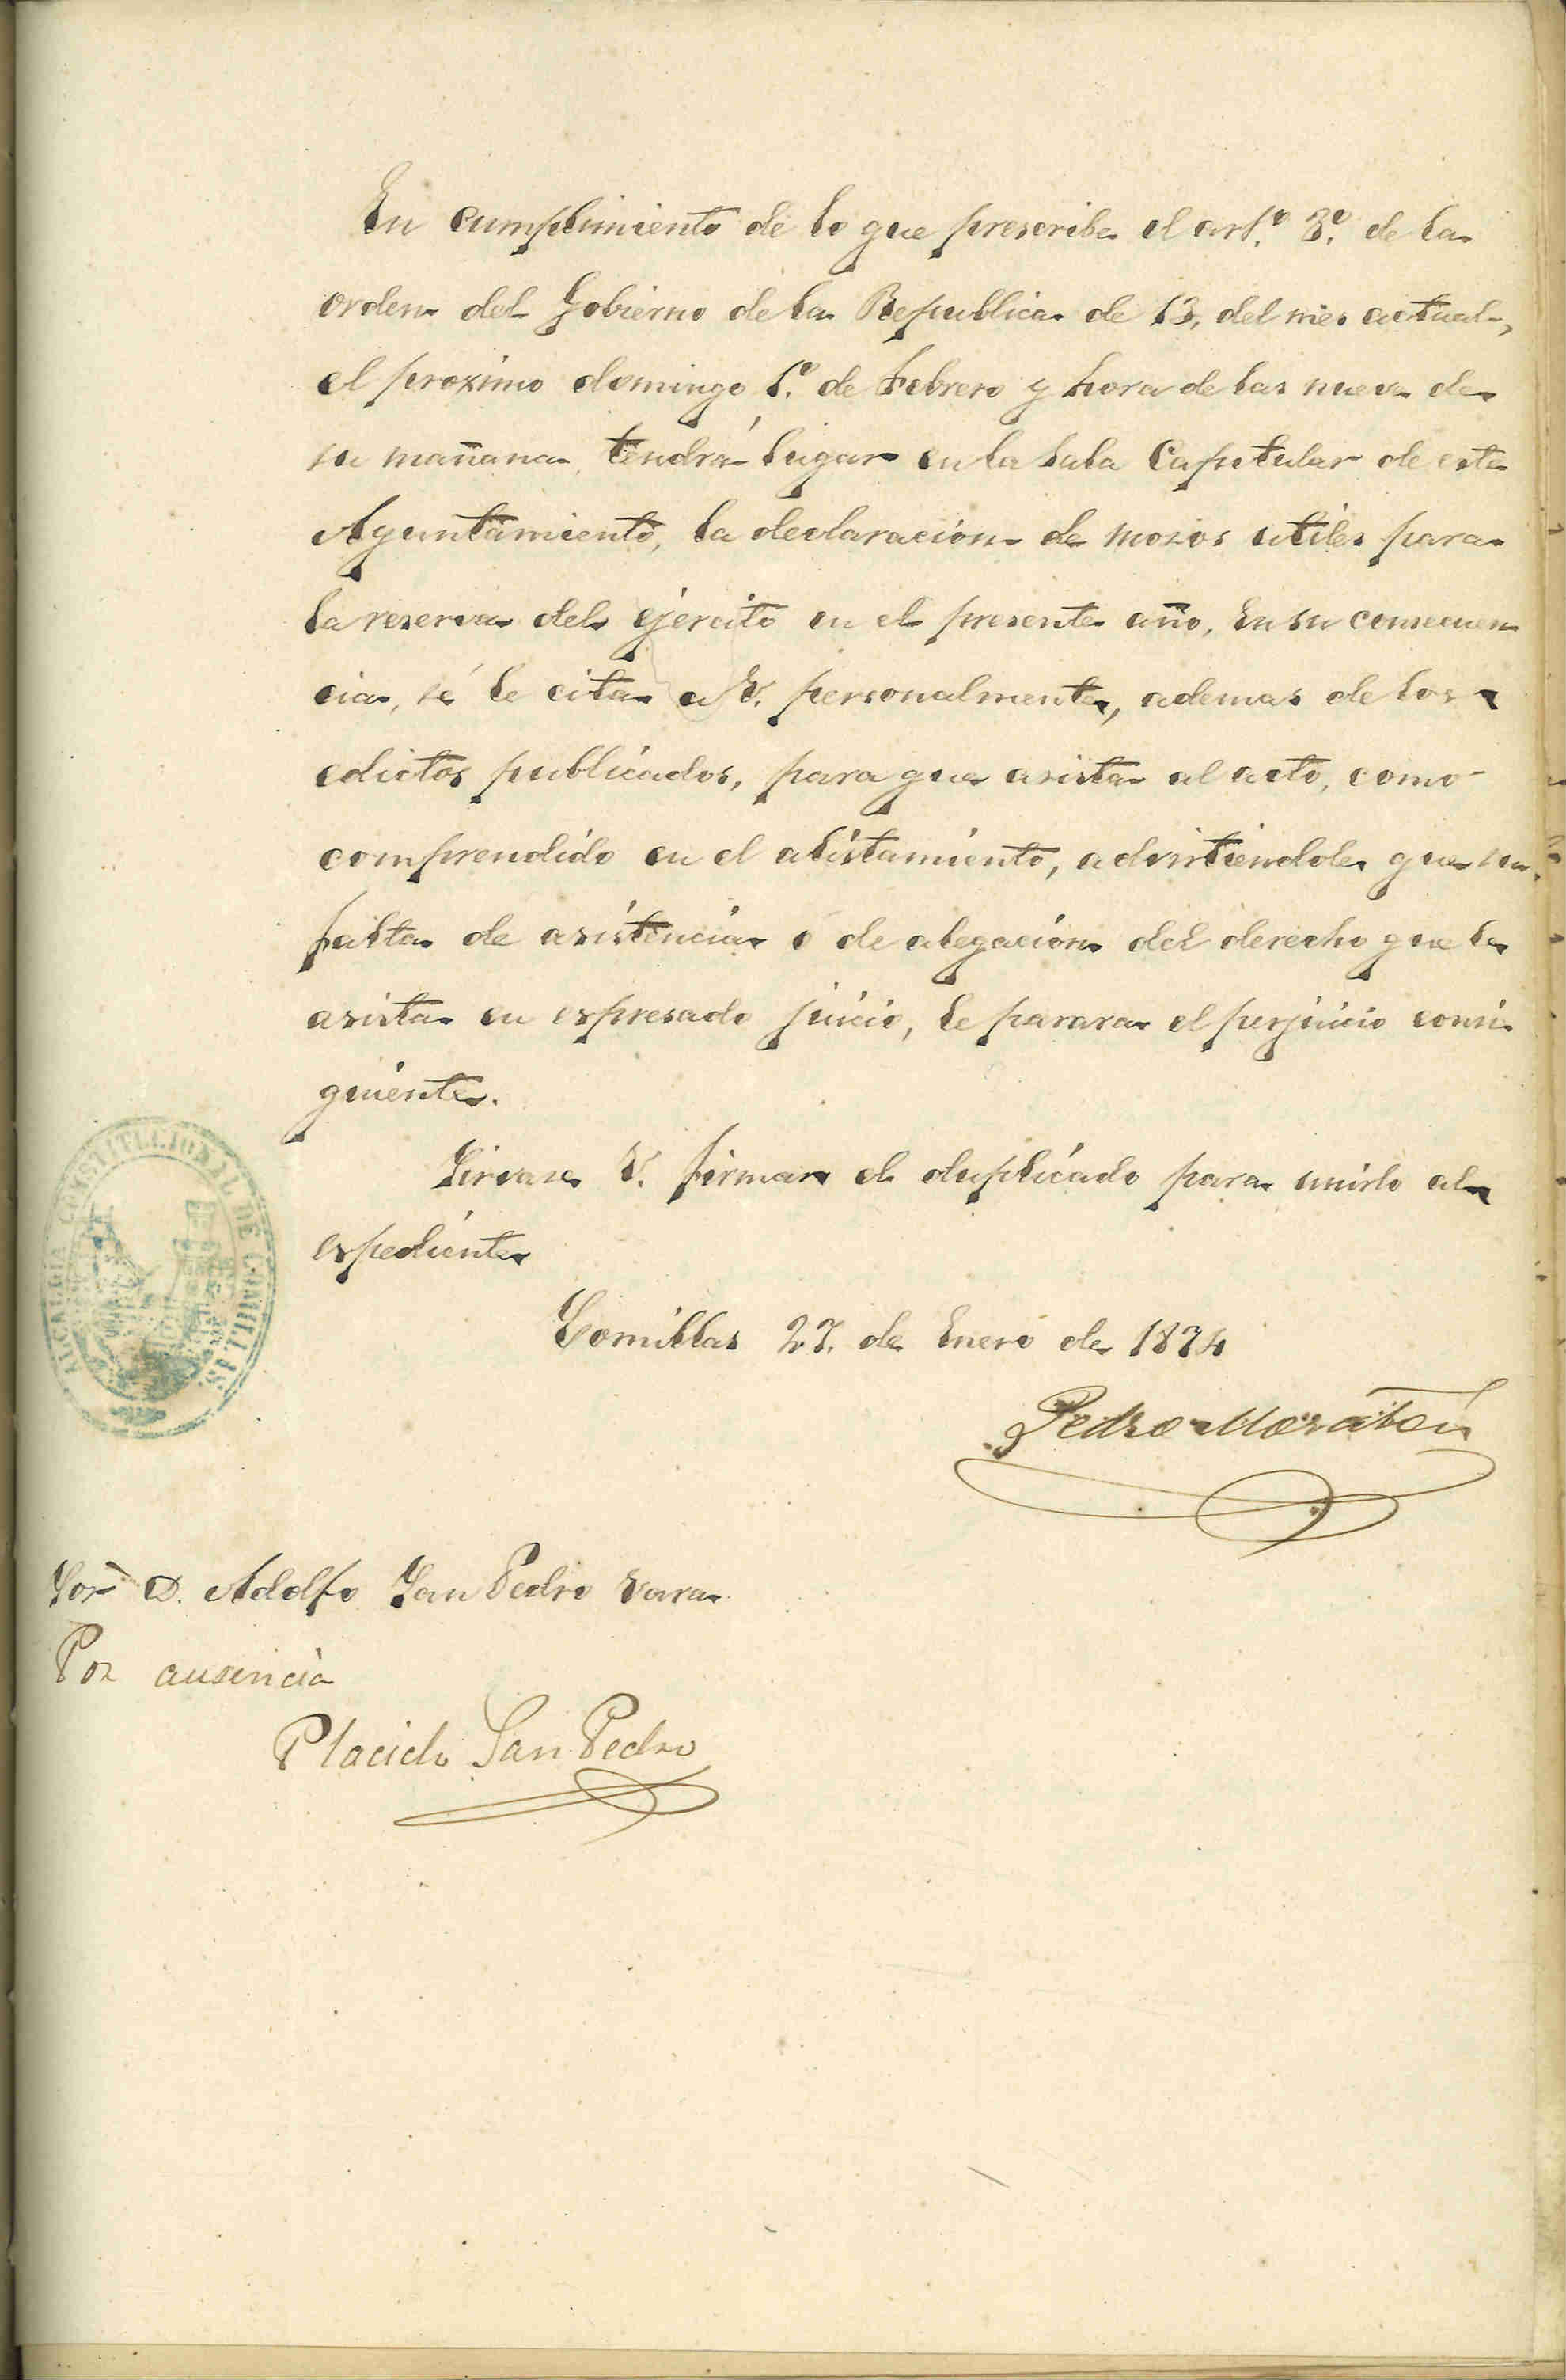 En cumplimiento de lo que prescribe el art.º 3.º de la
orden del Gobierno de la Republica de 13, del mes actual,
el proximo domingo 1.º de Febrero y hora de las nueve de
su mañana, tendrá lugar en la Sala Capitular de este
Ayuntamiento, la declaracion de mozos utiles para
la reserva del ejercito en el presente año. En su consecuen
cia, sé le cita a V. personalmente, ademas de los
edictos publicados, para que asista al acto, como
comprendido en el alistamiento, advirtiendole que su
falta de asistencia o de alegacion del derecho que le
asista en espresado juicio, le parara el perjuicio consi
guiente.
Sirvase V. firmar el duplicado para unirlo al
espediente
Comillas 27. de Enero de 1874
Pedro Moratón
ALCALDIA CONSTITUCIONAL DE COMILLAS
Sor D. Adolfo San Pedro Vara
Por ausencia
Placido San Pedro